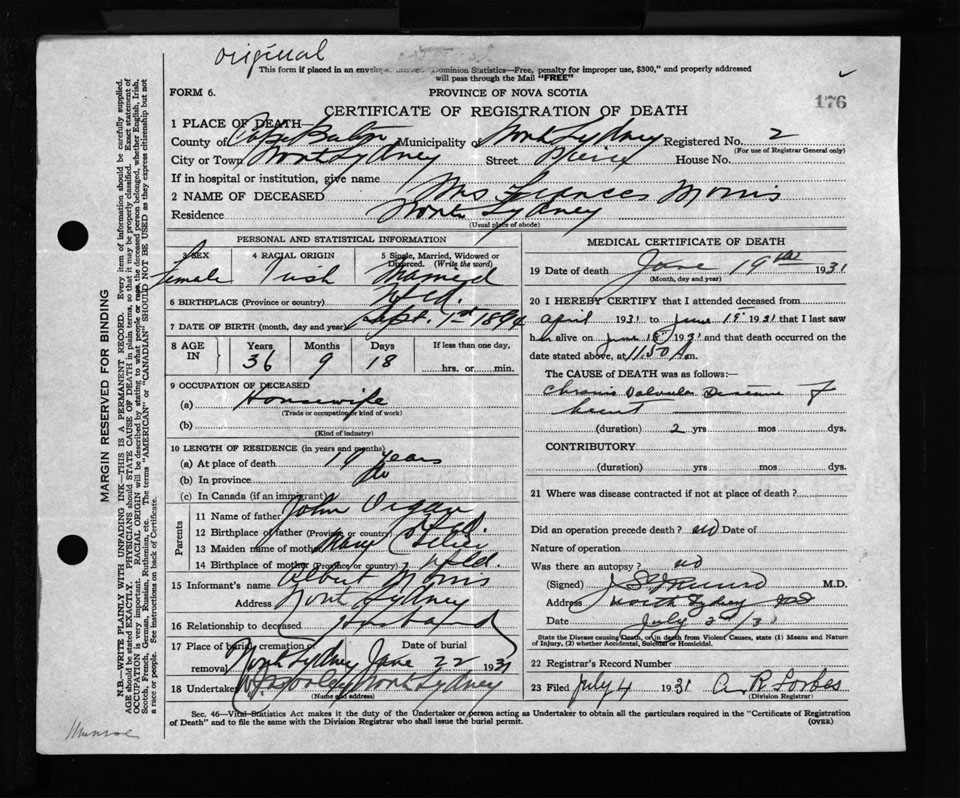 original
This form if placed in an envelope, Dominion Statistics—Free, penalty for improper use, $300," and properly addressed
will pass through the Mail "FREE"
176
FORM 6. PROVINCE OF NOVA SCOTIA
CERTIFICATE OF REGISTRATION OF DEATH
1 PLACE OF DEATH—
County of Cape Breton Municipality of North Sydney Registered No. 2
(For use of Registrar General only)
City or Town North Sydney Street Pierce House No.
If in hospital or institution, give name
2 NAME OF DECEASED Mrs Frances Morris
Residence North Sydney
(Usual place of abode)
PERSONAL AND STATISTICAL INFORMATION
3 SEX 4 RACIAL ORIGIN 5 Single, Married, Widowed or Divorced. (Write the word)
Female Irish Married
6 BIRTHPLACE (Province or country) Nfld.
7 DATE OF BIRTH (month, day and year) Sept. 1st 1894
8 AGE IN Years Months Days If less than one day,
36 9 18 hrs. or min.
9 OCCUPATION OF DECEASED
(a) Housewife
(Trade or occupation or kind of work)
(b)
(Kind of industry)
10 LENGTH OF RESIDENCE (in years and months)
(a) At place of death 19 years
(b) In province do
(c) In Canada (if an immigrant)
Parents
11 Name of father John Organ
12 Birthplace of father (Province or country) Nfld.
13 Maiden name of mother Mary
14 Birthplace of mother (Province or country) Nfld.
15 Informant's name Albert Morris
Address North Sydney
16 Relationship to deceased Husband
17 Place of burial, cremation or removal Date of burial
North Sydney June 22 1931
18 Undertaker North Sydney
(Name and address)
MEDICAL CERTIFICATE OF DEATH
19 Date of death June 19th 1931
(Month, day and year)
20 I HEREBY CERTIFY that I attended deceased from
April 1931 to June 19" 1931 that I last saw
h alive on June 1931 and that death occurred on the
date stated above, at 11.50 A m.
The CAUSE of DEATH was as follows:—
Chronic Valvular Disease of
heart
(duration) 2 yrs mos dys.
CONTRIBUTORY
(duration) yrs mos dys.
21 Where was disease contracted if not at place of death?
Did an operation precede death? no Date of
Nature of operation
Was there an autopsy? no
(Signed) Munro M.D.
Address North Sydney NS
Date July 2nd 31
State the Disease causing Death, or in death from Violent Causes, state (1) Means and Nature
of Injury, (2) whether Accidental, Suicidal or Homicidal.
22 Registrar's Record Number
23 Filed July 4 1931 A R Forbes
(Division Registrar)
Sec. 46—Vital Statistics Act makes it the duty of the Undertaker or person acting as Undertaker to obtain all the particulars required in the "Certificate of Registration
of Death" and to file the same with the Division Registrar who shall issue the burial permit. (OVER)
MARGIN RESERVED FOR BINDING
N.B.—WRITE PLAINLY WITH UNFADING INK—THIS IS A PERMANENT RECORD. Every item of information should be carefully supplied.
AGE should be stated EXACTLY. PHYSICIANS should STATE CAUSE OF DEATH in plain terms, so that it may be properly classified. Exact statement of
OCCUPATION is very important. RACIAL ORIGIN will be described by stating to what people or race the deceased person belonged, whether English, Irish,
Scotch, French, German, Russian, Ruthenian, etc. The terms "AMERICAN" or "CANADIAN" SHOULD NOT BE USED as they express citizenship but not
a race or people. See instructions on back of Certificate.
Munroe